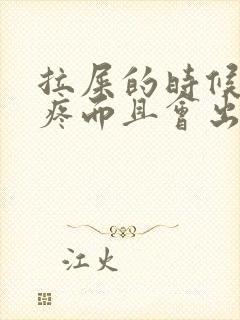 拉屎的時候
疼而且會出
江火